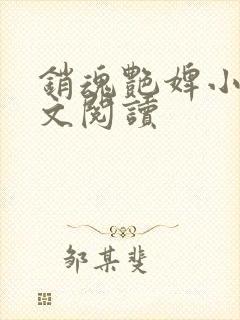 銷魂艷婢小
文閱讀
邹某斐